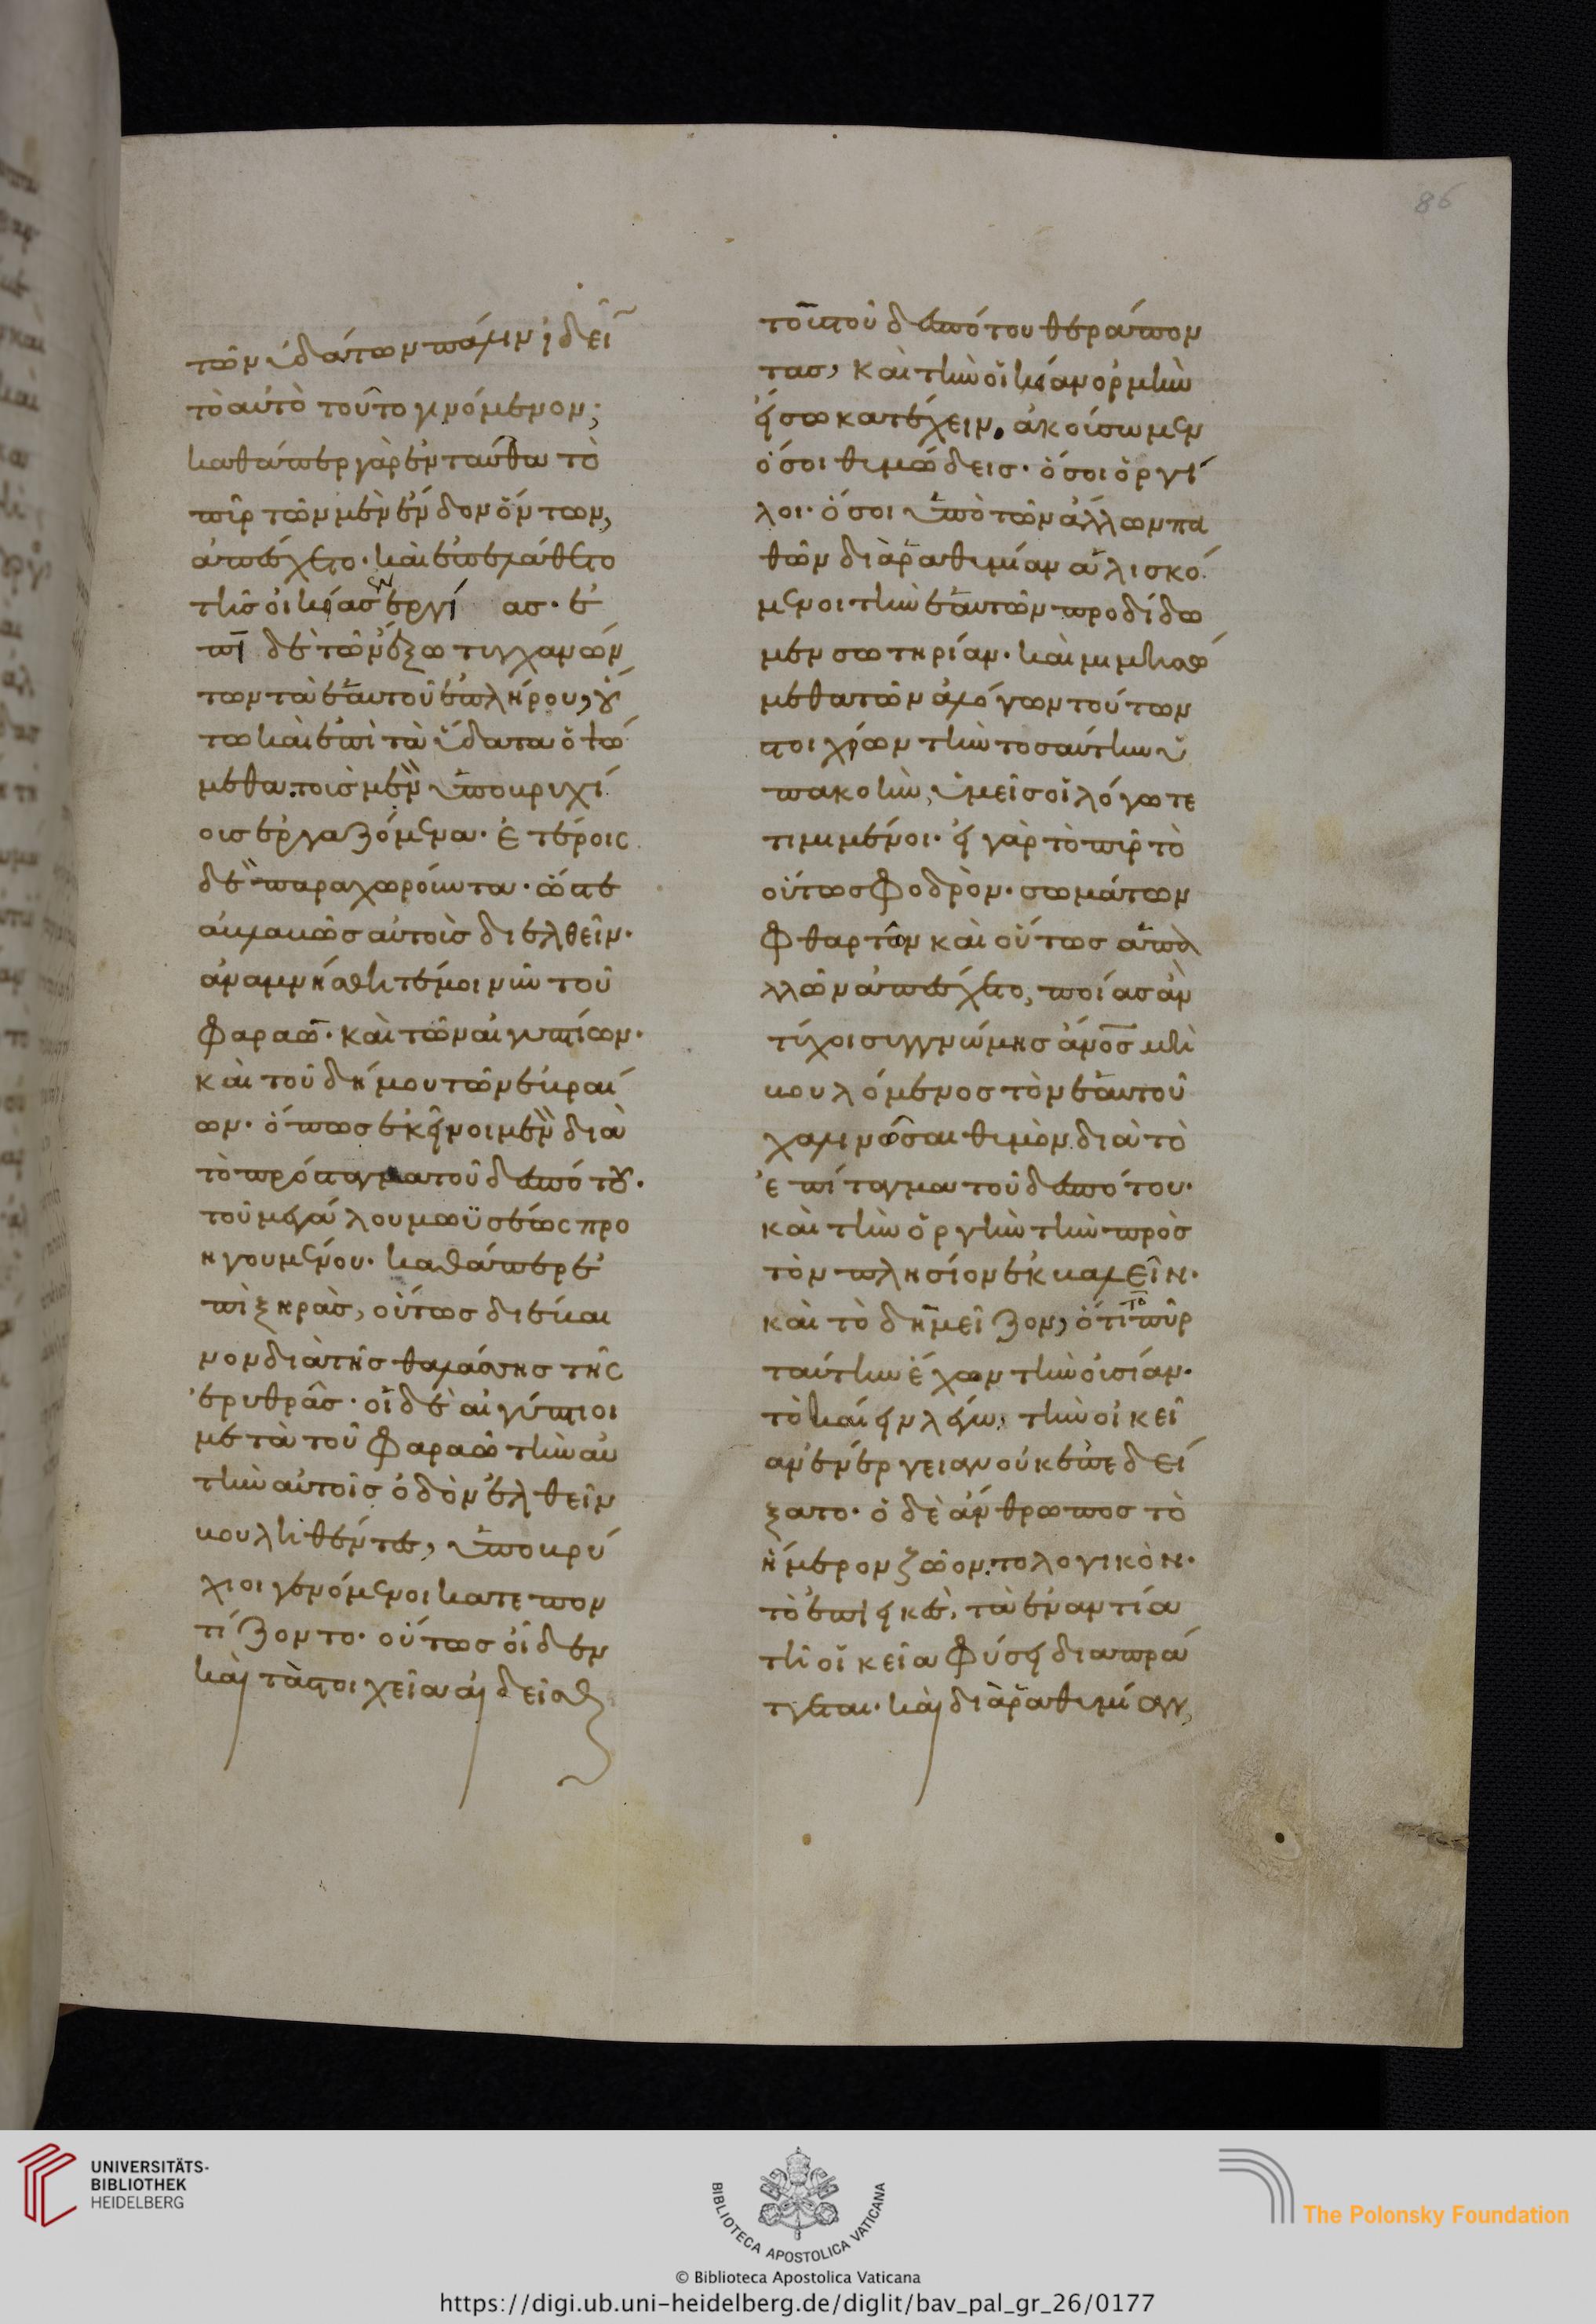 86
τῶν ὑδάτων πάλιν ἴδοι
τὸ αὐτὸ τοῦτο γινόμενον;
καθάπερ γὰρ ἐνταῦθα τὸ
πῦρ τῶν μὲν ἔνδον ὄντων,
ἀπέσχετο. καὶ ἐπελάθετο
τῆς οἰκείας ἐνεργίας. ἐ
πὶ δὲ τῶν ἔξω τυγχανόν
των τὰ ἑαυτοῦ ἐπλήρου, οὕ
τω καὶ ἐπὶ τὰ ὕδατα ὀψώ
μεθα. τοῖς μὲν ὑποβρυχί
οις ἐργαζόμενα. ἑτέροις
δὲ παραχωροῦντα. ὥστε
ἀβλαβῶς αὐτοὶς διελθεῖν.
ἀναμνήσθητέ μοι νῦν τοῦ
φαραῶ. καὶ τῶν αἰγυπτίων.
καὶ τοῦ δήμου τῶν ἑβραί
ων. ὅπως ἐκεῖνοι μὲν διὰ
τὸ πρόσταγμα τοῦ δεσπότου.
τοῦ μεγάλου μωϋσέως προ
ηγουμένου. καθάπερ ἐ
πὶ ξηρὰς, οὕτως διέβαι
νον διὰ τῆς θαλάσσης τῆς
ἐρυθρᾶς. οἱ δὲ αἰγύπτιοι
μετὰ τοῦ φαραὼ τὴν αὐ
τὴν αὐτοῖς ὁδὸν ἐλθεῖν
βουληθέντες, ὑποβρύ
χιοι γενόμενοι κατεπον
τίζοντο. οὕτως οἶδεν
καὶ τὰ στοιχεῖα αἰδεῖσθαι
τοὺς τοῦ δεσπότου θεράπον
τας, καὶ τὴν οἰκείαν ὁρμὴν
εἴσω κατέχειν. ἀκούσωμεν
ὅσοι θυμώδεις. ὅσοι ὀργί
λοι. ὅσοι ὑπὸ τῶν ἄλλων πα
θῶν διὰ ῥαθυμίαν ἁλισκό
μενοι τὴν ἑαυτῶν προδίδω
μεν σωτηρίαν. καὶ μιμησώ
μεθα τῶν ἀλόγων τούτων
στοιχείων τὴν τοσαύτην ὑ
πακοὴν, ὑμεῖς οἱ λόγω τε
τιμιμένοι. εἰ γὰρ τὸ πῦρ τὸ
οὕτω σφοδρὸν. σωμάτων
φθαρτῶν καὶ οὕτως ἁπα
λλῶν ἀπέσχετο, ποίας ἂν
τύχοι συγγνώμης ἄνος μὴ
βουλόμενος τὸν ἑαυτοῦ
χαλινῶσαι θυμὸν διὰ τὸ
ἐπίταγμα τοῦ δεσπότου.
καὶ τὴν ὀργὴν τὴν πρὸς
τὸν πλησίον ἐκβαλεῖν.
καὶ τὸ δὴ μεῖζον, ὅτι τὸ πῦρ
ταύτην ἔχων τὴν οὐσίαν.
τὸ καίειν λέγω, τὴν οἰκεῖ
αν ἐνέργειαν οὐκ ἐπεδεί
ξατο. ὁ δὲ ἄνθρωπος τὸ
ἥμερον ζῶον. τὸ λογικὸν.
τὸ ἐπιεικὲς, τὰ ἐναντία
τῆ οἰκεία φύσει διαπρά
ττεται. καὶ διὰ ῥαθυμίαν,
UNIVERSITÄTS-
BIBLIOTHEK
HEIDELBERG
BIBLIOTECA APOSTOLICA VATICANA
The Polonsky Foundation
© Biblioteca Apostolica Vaticana
https://digi.ub.uni-heidelberg.de/diglit/bav_pal_gr_26/0177